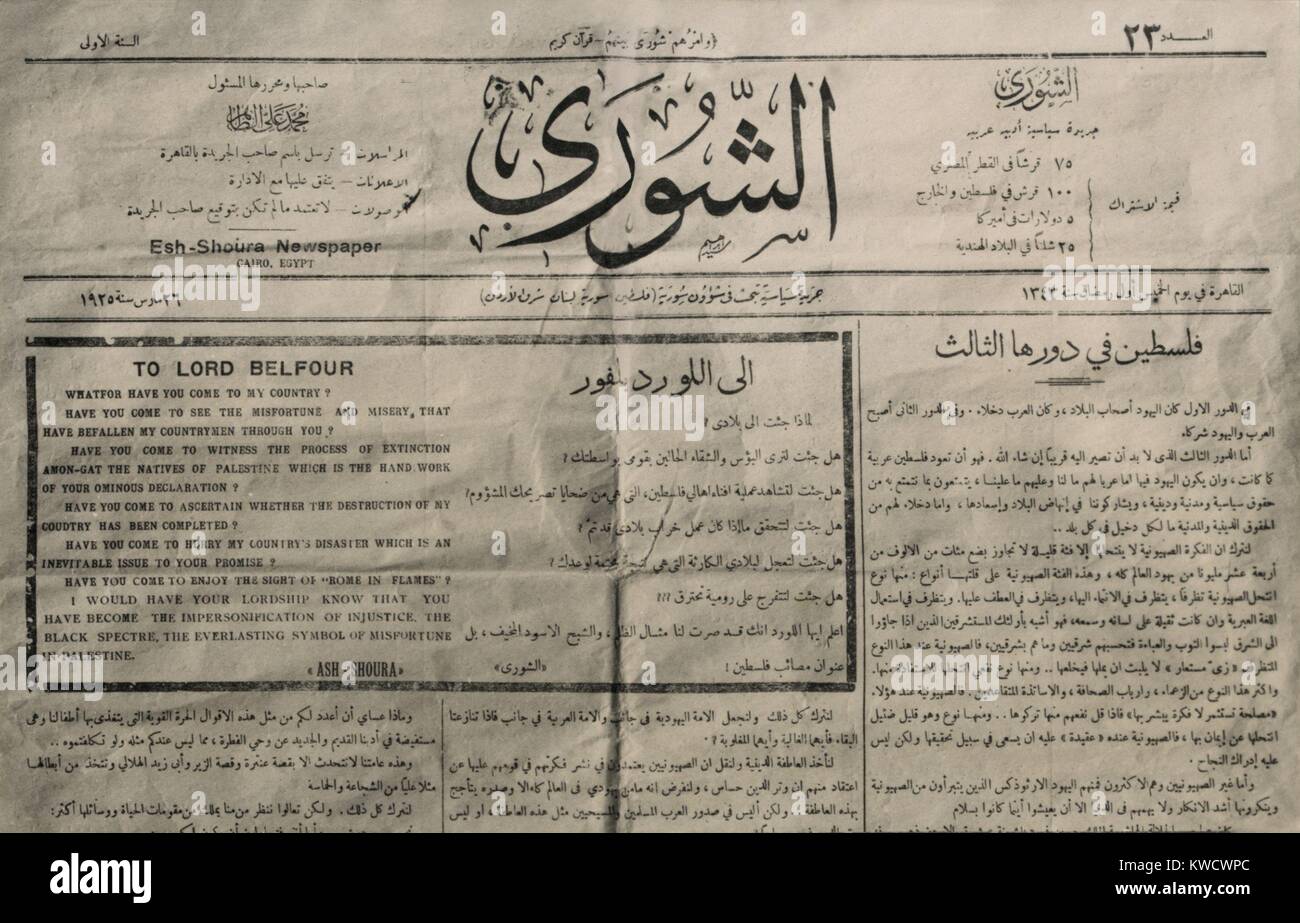 العــدد ٢٣
﴿وامرهم شورى بينهم - قرآن كريم﴾
السنة الاولى
الشورى
جريدة سياسية أدبية عربية
قيمة الاشتراك
٧٥ قرشاً في القطر المصري
١٠٠ قرش في فلسطين والخارج
٥ دولارات في أميركا
٢٥ شلناً في البلاد الهندية
الشورى
صاحبها ومحررها المسئول
محمد علي الطاهر
المراسلات - ترسل باسم صاحب الجريدة بالقاهرة
الاعلانات - يتفق عليها مع الادارة
الوصولات - لا تعتمد مالم تكن بتوقيع صاحب الجريدة
Esh-Shoura Newspaper
CAIRO, EGYPT
القاهرة في يوم الخميس أول رمضان سنة ١٣٤٣
جريدة سياسية تبحث في شؤون سورية (فلسطين سورية لبنان شرق الأردن)
٢٦ مارس سنة ١٩٢٥
TO LORD BELFOUR
WHATFOR HAVE YOU COME TO MY COUNTRY ?
HAVE YOU COME TO SEE THE MISFORTUNE AND MISERY, THAT
HAVE BEFALLEN MY COUNTRYMEN THROUGH YOU ?
HAVE YOU COME TO WITNESS THE PROCESS OF EXTINCTION
AMON-GAT THE NATIVES OF PALESTINE WHICH IS THE HAND WORK
OF YOUR OMINOUS DECLARATION ?
HAVE YOU COME TO ASCERTAIN WHETHER THE DESTRUCTION OF MY
COUDTRY HAS BEEN COMPLETED ?
HAVE YOU COME TO HURRY MY COUNTRY'S DISASTER WHICH IS AN
INEVITABLE ISSUE TO YOUR PROMISE ?
HAVE YOU COME TO ENJOY THE SIGHT OF "ROME IN FLAMES" ?
I WOULD HAVE YOUR LORDSHIP KNOW THAT YOU
HAVE BECOME THE IMPERSONIFICATION OF INJUSTICE, THE
BLACK SPECTRE, THE EVERLASTING SYMBOL OF MISFORTUNE
IN PALESTINE.
« ASH-SHOURA »
الى اللورد بلفور
لماذا جئت الى بلادى ؟
هل جئت لترى البؤس والشقاء الحالين بقومى بواسطتك ؟
هل جئت لتشاهد عملية افناء اهالي فلسطين، التى هي من ضحايا تصريحك المشؤوم؟
هل جئت لتتحقق ما إذا كان عمل خراب بلادي قد تم ؟
هل جئت لتعجل لبلادي الكارثة التى هي نتيجة محتمة لوعدك ؟
هل جئت لتتفرج على رومية تحترق ؟؟!
اعلم ايها اللورد انك قد صرت لنا مثال الظلم، والشبح الاسود المخيف، بل
عنوان مصائب فلسطين !
«الشورى»
فلسطين في دورها الثالث
في الدور الاول كان اليهود أصحاب البلاد، وكان العرب دخلاء. وفي الدور الثانى أصبح
العرب واليهود شركاء.
أما الدور الثالث الذى لا بد أن تصير اليه قريباً إن شاء الله. فهو أن تعود فلسطين عربية
كما كانت، وان يكون اليهود فيها اما عربا لهم ما لنا وعليهم ما علينا، يتمتعون بما نتمتع به من
حقوق سياسية ومدنية ودينية، ويشاركوننا في إنهاض البلاد وإسعادها، واما دخلاء لهم من
الحقوق الدينية والمدنية ما لكل دخيل في كل بلد ..
لنترك ان الفكرة الصهيونية لا ينتحلها إلا فئة قليلة لا تتجاوز بضع مئات من الالوف من
أربعة عشر مليونا من يهود العالم كله، وهذه الفئة الصهيونية على قلتها أنواع : منها نوع
انتحل الصهيونية تظرفاً، يتظرف في الانتماء اليها، ويتظرف في العطف عليها. ويتظرف في استعمال
اللغة العبرية وان كانت ثقيلة على لسانه وسمعه، فهو أشبه بأولئك المستشرقين الذين اذا جاؤوا
الى الشرق لبسوا الثوب والعباءة فتحسبهم شرقيين وما هم بشرقيين، فالصهيونية عند هذا النوع
المتظرف «زى مستعار» لا يلبث ان يملها فيخلعها .. ومنها نوع نفعي انتحلها للاستفادة منها.
واكثر هذا النوع من الزعماء، وارباب الصحافة، والاساتذة المتقاعدين. فالصهيونية عند هؤلاء
«مصلحة تستثمر لا فكرة يبشر بها» فاذا قل نفعهم منها تركوها .. ومنها نوع وهو قليل ضئيل
انتحلها عن إيمان بها، فالصهيونية عنده «عقيدة» عليه ان يسعى في سبيل تحقيقها ولكن ليس
عليه إدراك النجاح.
وأما غير الصهيونيين وهم الاكثرون فمنهم اليهود الارثوذكس الذين يتبرأون من الصهيونية
وينكرونها أشد الانكار ولا يهمهم في الدنيا الا أن يعيشوا أينما كانوا بسلام
لنترك كل ذلك ولنجعل الامة اليهودية في جانب والامة العربية في جانب فاذا تنازعتا
البقاء فأيهما الغالبة وأيهما المغلوبة ؟
لنأخذ العاطفة الدينية ولنقل ان الصهيونيين يعتمدون في نشر فكرتهم في قومهم عليها عن
اعتقاد منهم ان وتر الدين حساس، ولنفرض انه مامن يهودي في العالم كله الا وصدره يتأجج
بهذه العاطفة. ولكن أليس في صدور العرب المسلمين والمسيحيين مثل هذه العاطفة، او ليس
وماذا عساي أن أعدد لكم من مثل هذه الاقوال الحرة القوية التى يتغذى بها أطفالنا وهي
مستفيضة في أدبنا القديم والجديد عن وحي الفطرة، مما ليس عندكم مثله ولو تكلفتموه ..
وهذه عامتنا لا تتحدث الا بقصة عنترة وقصة الزير وأبى زيد الهلالي وتتخذ من أبطالها
مثلا عليا من الشجاعة والحماسة
لنترك كل ذلك. ولكن تعالوا ننظر من منا يملك من مقومات الحياة ووسائلها أكثر :
alamy stock photo
alamy
Image ID: KWCWPC
www.alamy.com